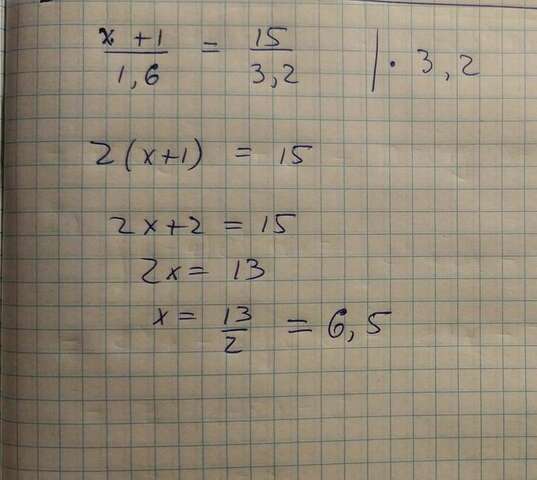 (x + 1)/1,6 = 15/3,2 | · 3,2
2(x+1) = 15
2x+2 = 15
2x = 13
x = 13/2 = 6,5